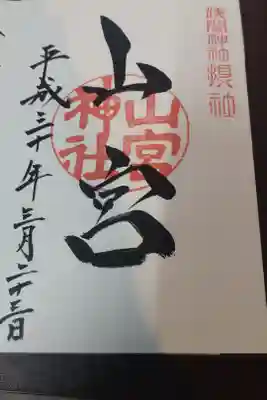 浅間神社摂社
山宮
山宮神社
平成三十年三月二十三日